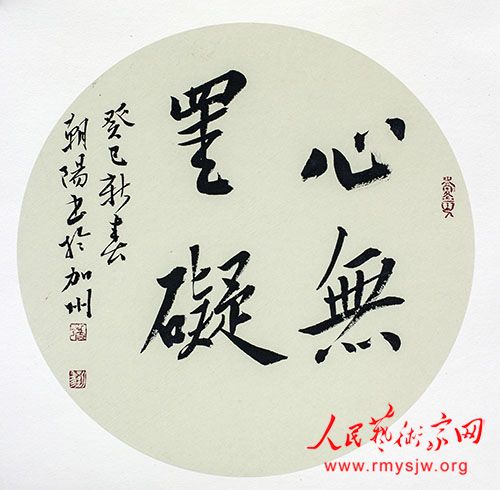 心無
罣礙
癸巳新春
朝陽书於加州
人民藝術家网
www.rmysjw.org